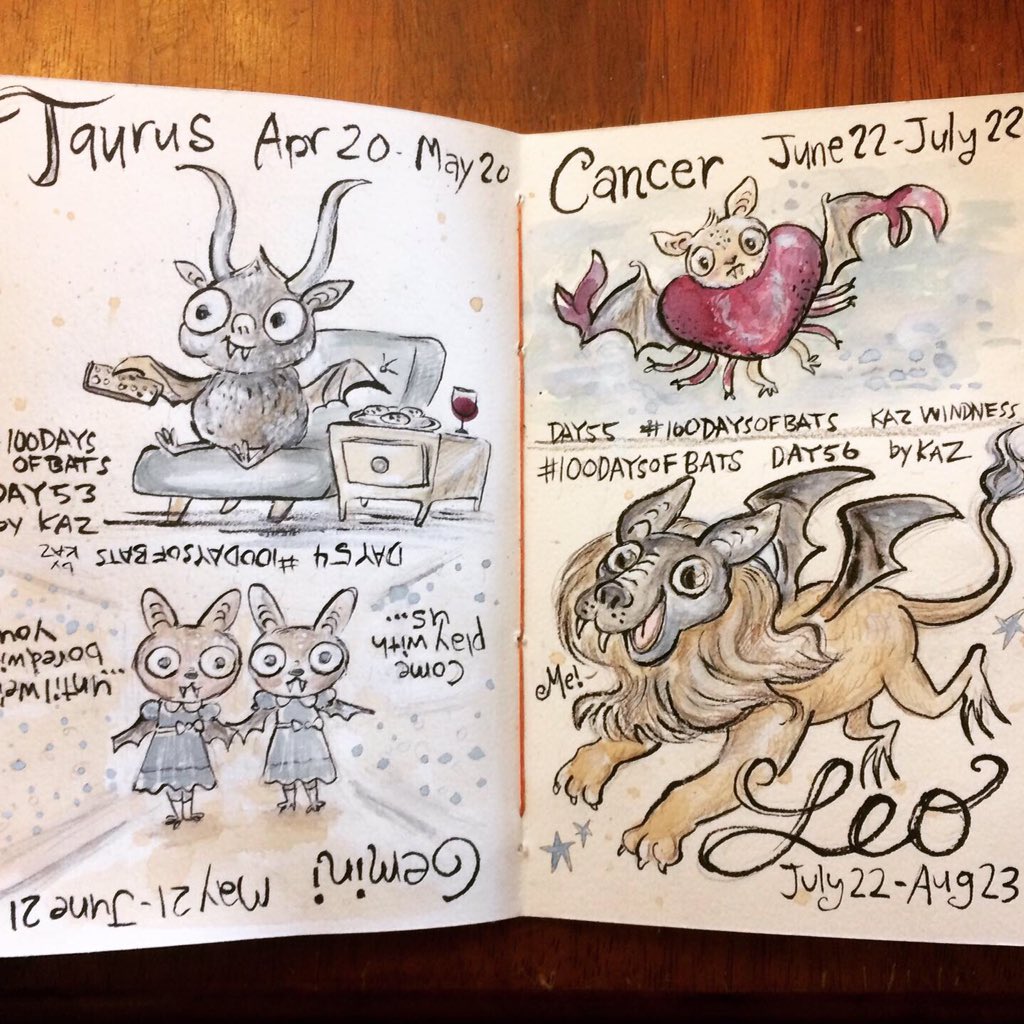 Taurus Apr 20 - May 20
100DAYS
OF BATS
DAY 53
by KAZ
DAY 54 #100DAYSOFBATS
by
KAZ
Come
play with
us...
...until we're
bored with
you
Gemini
May 21 - June 21
Cancer June 22 - July 22
DAY 55 #100DAYSOFBATS KAZ WINDNESS
#100DAYSOFBATS DAY 56 by KAZ
Me!~
Leo
July 22 - Aug 23